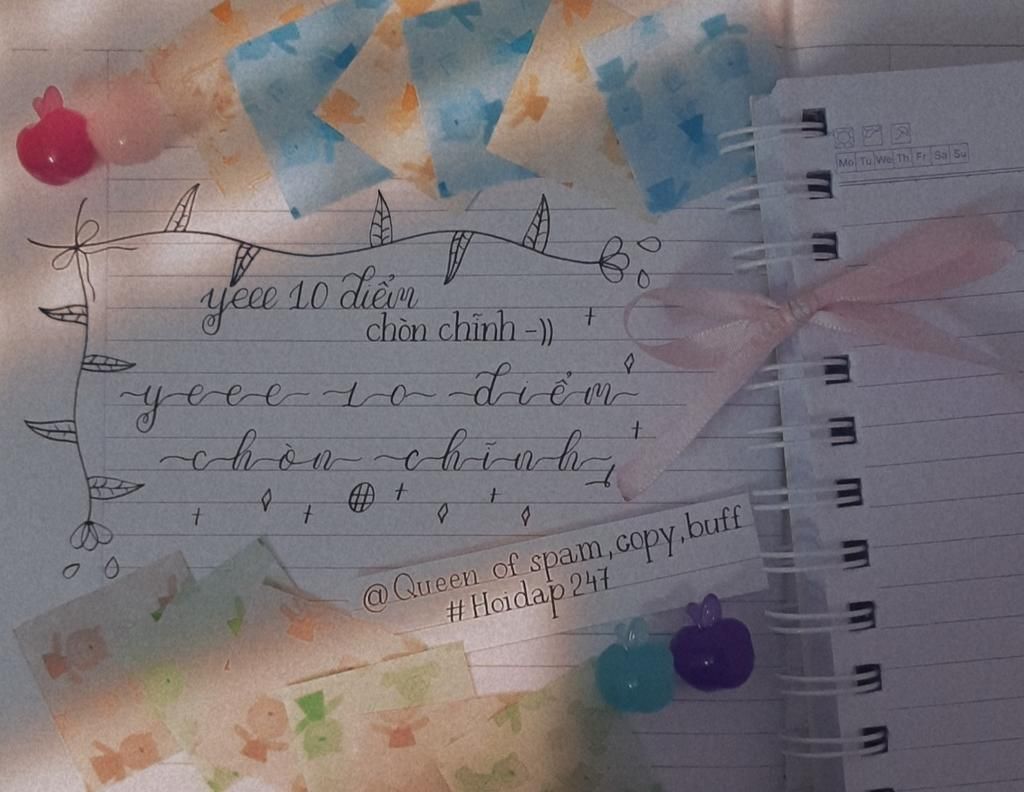 Mo Tu We Th Fr Sa Su
yeee 10 điểm
chòn chĩnh -))
~y~e~e~e~ ~1~0~ ~đ~i~ể~m~
~c~h~ò~n~ ~c~h~ĩ~n~h~
@Queen of spam, copy, buff
#Hoidap247